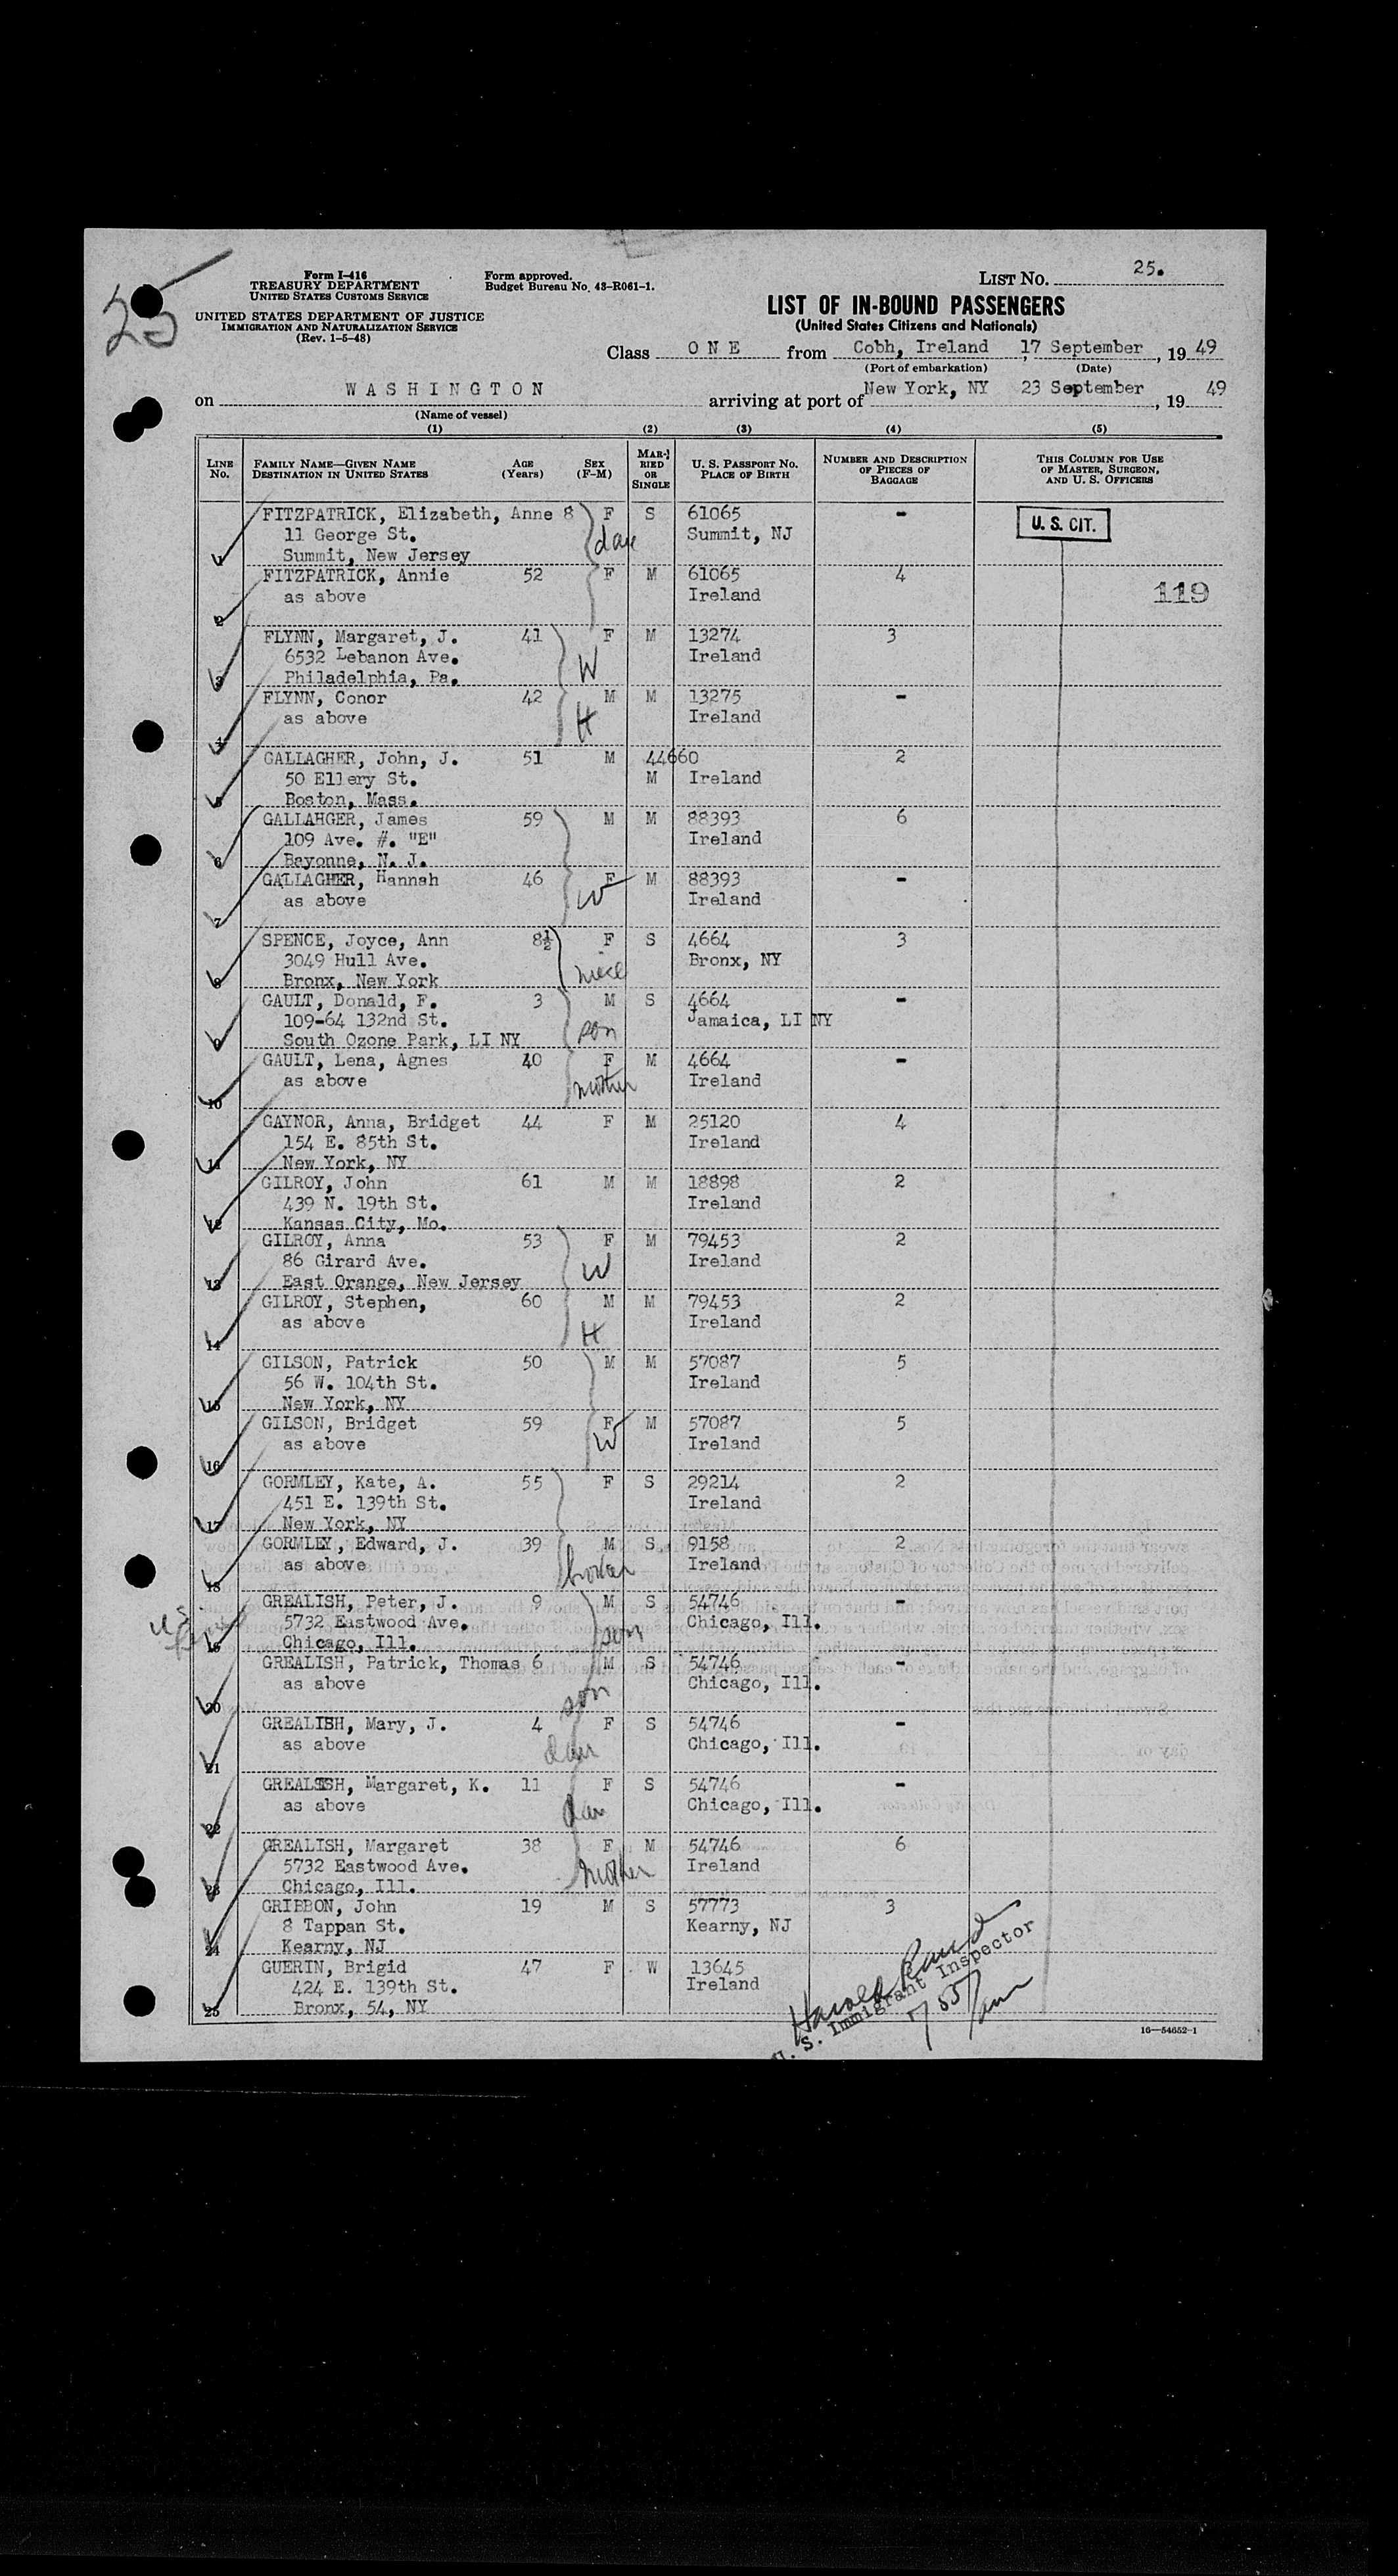 25
Form I-416
TREASURY DEPARTMENT
UNITED STATES CUSTOMS SERVICE
UNITED STATES DEPARTMENT OF JUSTICE
IMMIGRATION AND NATURALIZATION SERVICE
(Rev. 1-5-48)
Form approved.
Budget Bureau No. 43-R061-1.
LIST No. 25.
LIST OF IN-BOUND PASSENGERS
(United States Citizens and Nationals)
Class O N E from Cobh, Ireland 17 September, 19 49
(Port of embarkation) (Date)
on W A S H I N G T O N arriving at port of New York, NY 23 September, 19 49
(Name of vessel)
(1) (2) (3) (4) (5)
LINE No. FAMILY NAME—GIVEN NAME DESTINATION IN UNITED STATES AGE (Years) SEX (F-M) MARRIED OR SINGLE U. S. PASSPORT No. PLACE OF BIRTH NUMBER AND DESCRIPTION OF PIECES OF BAGGAGE THIS COLUMN FOR USE OF MASTER, SURGEON, AND U. S. OFFICERS
1 FITZPATRICK, Elizabeth, Anne 8 F S 61065 - U. S. CIT.
11 George St. dau Summit, NJ
Summit, New Jersey
2 FITZPATRICK, Annie 52 F M 61065 4
as above Ireland 119
3 FLYNN, Margaret, J. 41 F M 13274 3
6532 Lebanon Ave. W Ireland
Philadelphia, Pa.
4 FLYNN, Conor 42 M M 13275 -
as above H Ireland
5 GALLAGHER, John, J. 51 M 44660 2
50 Ellery St. M Ireland
Boston, Mass.
6 GALLAHGER, James 59 M M 88393 6
109 Ave. #. "E" Ireland
Bayonne, N. J.
7 GALLAGHER, Hannah 46 F M 88393 -
as above W Ireland
8 SPENCE, Joyce, Ann 8½ F S 4664 3
3049 Hull Ave. niece Bronx, NY
Bronx, New York
9 GAULT, Donald, F. 3 M S 4664 -
109-64 132nd St. son Jamaica, LI NY
South Ozone Park, LI NY
10 GAULT, Lena, Agnes 40 F M 4664 -
as above mother Ireland
11 GAYNOR, Anna, Bridget 44 F M 25120 4
154 E. 85th St. Ireland
New York, NY
12 GILROY, John 61 M M 18898 2
439 N. 19th St. Ireland
Kansas City, Mo.
13 GILROY, Anna 53 F M 79453 2
86 Girard Ave. W Ireland
East Orange, New Jersey
14 GILROY, Stephen, 60 M M 79453 2
as above H Ireland
15 GILSON, Patrick 50 M M 57087 5
56 W. 104th St. Ireland
New York, NY
16 GILSON, Bridget 59 F M 57087 5
as above W Ireland
17 GORMLEY, Kate, A. 55 F S 29214 2
451 E. 139th St. Ireland
New York, NY
18 GORMLEY, Edward, J. 39 M S 9158 2
as above brother Ireland
19 GREALISH, Peter, J. 9 M S 54746 -
5732 Eastwood Ave. son Chicago, Ill.
Chicago, Ill.
20 GREALISH, Patrick, Thomas 6 M S 54746 -
as above son Chicago, Ill.
21 GREALISH, Mary, J. 4 F S 54746 -
as above dau Chicago, Ill.
22 GREALISH, Margaret, K. 11 F S 54746 -
as above dau Chicago, Ill.
23 GREALISH, Margaret 38 F M 54746 6
5732 Eastwood Ave. mother Ireland
Chicago, Ill.
24 GRIBBON, John 19 M S 57773 3
8 Tappan St. Kearny, NJ
Kearny, NJ
25 GUERIN, Brigid 47 F W 13645
424 E. 139th St. Ireland
Bronx, 54, NY
Harold
U. S. Immigrant Inspector
16—54652-1